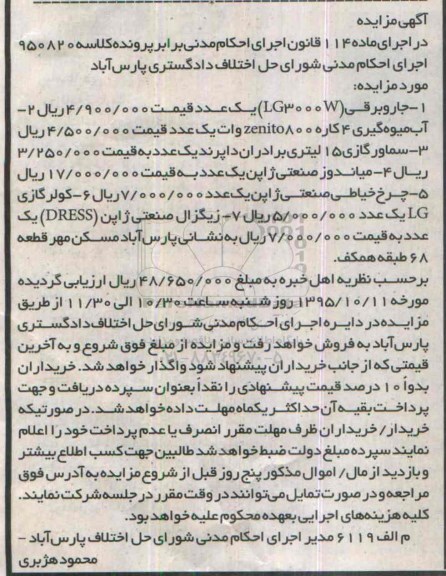 آگهی مزایده
در اجرای ماده ۱۱۴ قانون اجرای احکام مدنی برابر پرونده کلاسه ۹۵۰۸۲۰
اجرای احکام مدنی شورای حل اختلاف دادگستری پارس آباد
مورد مزایده:
۱-جاروبرقی(LG۳۰۰۰W) یک عدد قیمت ۴/۹۰۰/۰۰۰ ریال ۲-
آب میوه گیری ۴ کاره zenito۸۰۰ وات یک عدد قیمت ۴/۵۰۰/۰۰۰ ریال
۳-سماور گازی ۱۵ لیتری برادران داپرند یک عدد به قیمت ۳/۲۵۰/۰۰۰
ریال ۴- میاندوز صنعتی ژاپن یک عدد به قیمت ۱۷/۰۰۰/۰۰۰ ریال
۵-چرخ خیاطی صنعتی ژاپن یک عدد ۷/۰۰۰/۰۰۰ ریال ۶-کولر گازی
LG یک عدد ۵/۰۰۰/۰۰۰ ریال ۷- زیگزال صنعتی ژاپن (DRESS) یک
عدد به قیمت ۷/۰۰۰/۰۰۰ ریال به نشانی پارس آباد مسکن مهر قطعه
۶۸ طبقه همکف.
برحسب نظریه اهل خبره به مبلغ ۴۸/۶۵۰/۰۰۰ ریال ارزیابی گردیده
مورخه ۱۳۹۵/۱۰/۱۱ روز شنبه ساعت ۱۰/۳۰ الی ۱۱/۳۰ از طریق
مزایده در دایره اجرای احکام مدنی شورای حل اختلاف دادگستری
پارس آباد به فروش خواهد رفت و مزایده از مبلغ فوق شروع و به آخرین
قیمتی که از جانب خریداران پیشنهاد شود واگذار خواهد شد. خریداران
بدواً ۱۰ درصد قیمت پیشنهادی را نقداً بعنوان سپرده دریافت و جهت
پرداخت بقیه آن حداکثر یکماه مهلت داده خواهد شد. در صورتیکه
خریدار/ خریداران ظرف مهلت مقرر انصرف یا عدم پرداخت خود را اعلام
نمایند سپرده مبلغ دولت ضبط خواهد شد طالبین جهت کسب اطلاع بیشتر
و بازدید از مال/ اموال مذکور پنج روز قبل از شروع مزایده به آدرس فوق
مراجعه و در صورت تمایل می توانند در وقت مقرر در جلسه شرکت نمایند.
کلیه هزینه های اجرایی بعهده محکوم علیه خواهد بود.
م الف ۶۱۱۹ مدیر اجرای احکام مدنی شورای حل اختلاف پارس آباد -
محمود هژبری